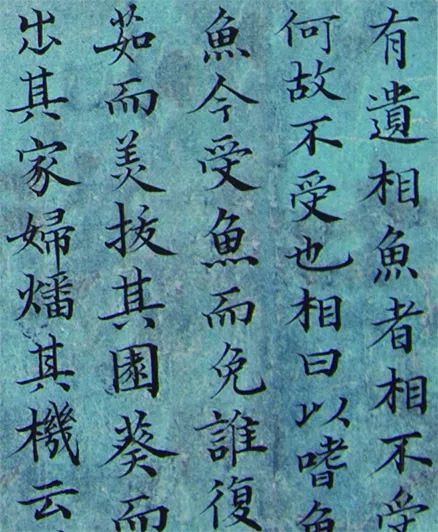 有遺相魚者相不受
何故不受也相曰以嗜魚
魚今受魚而免誰復
茹而美拔其園葵而
出其家婦燔其機云